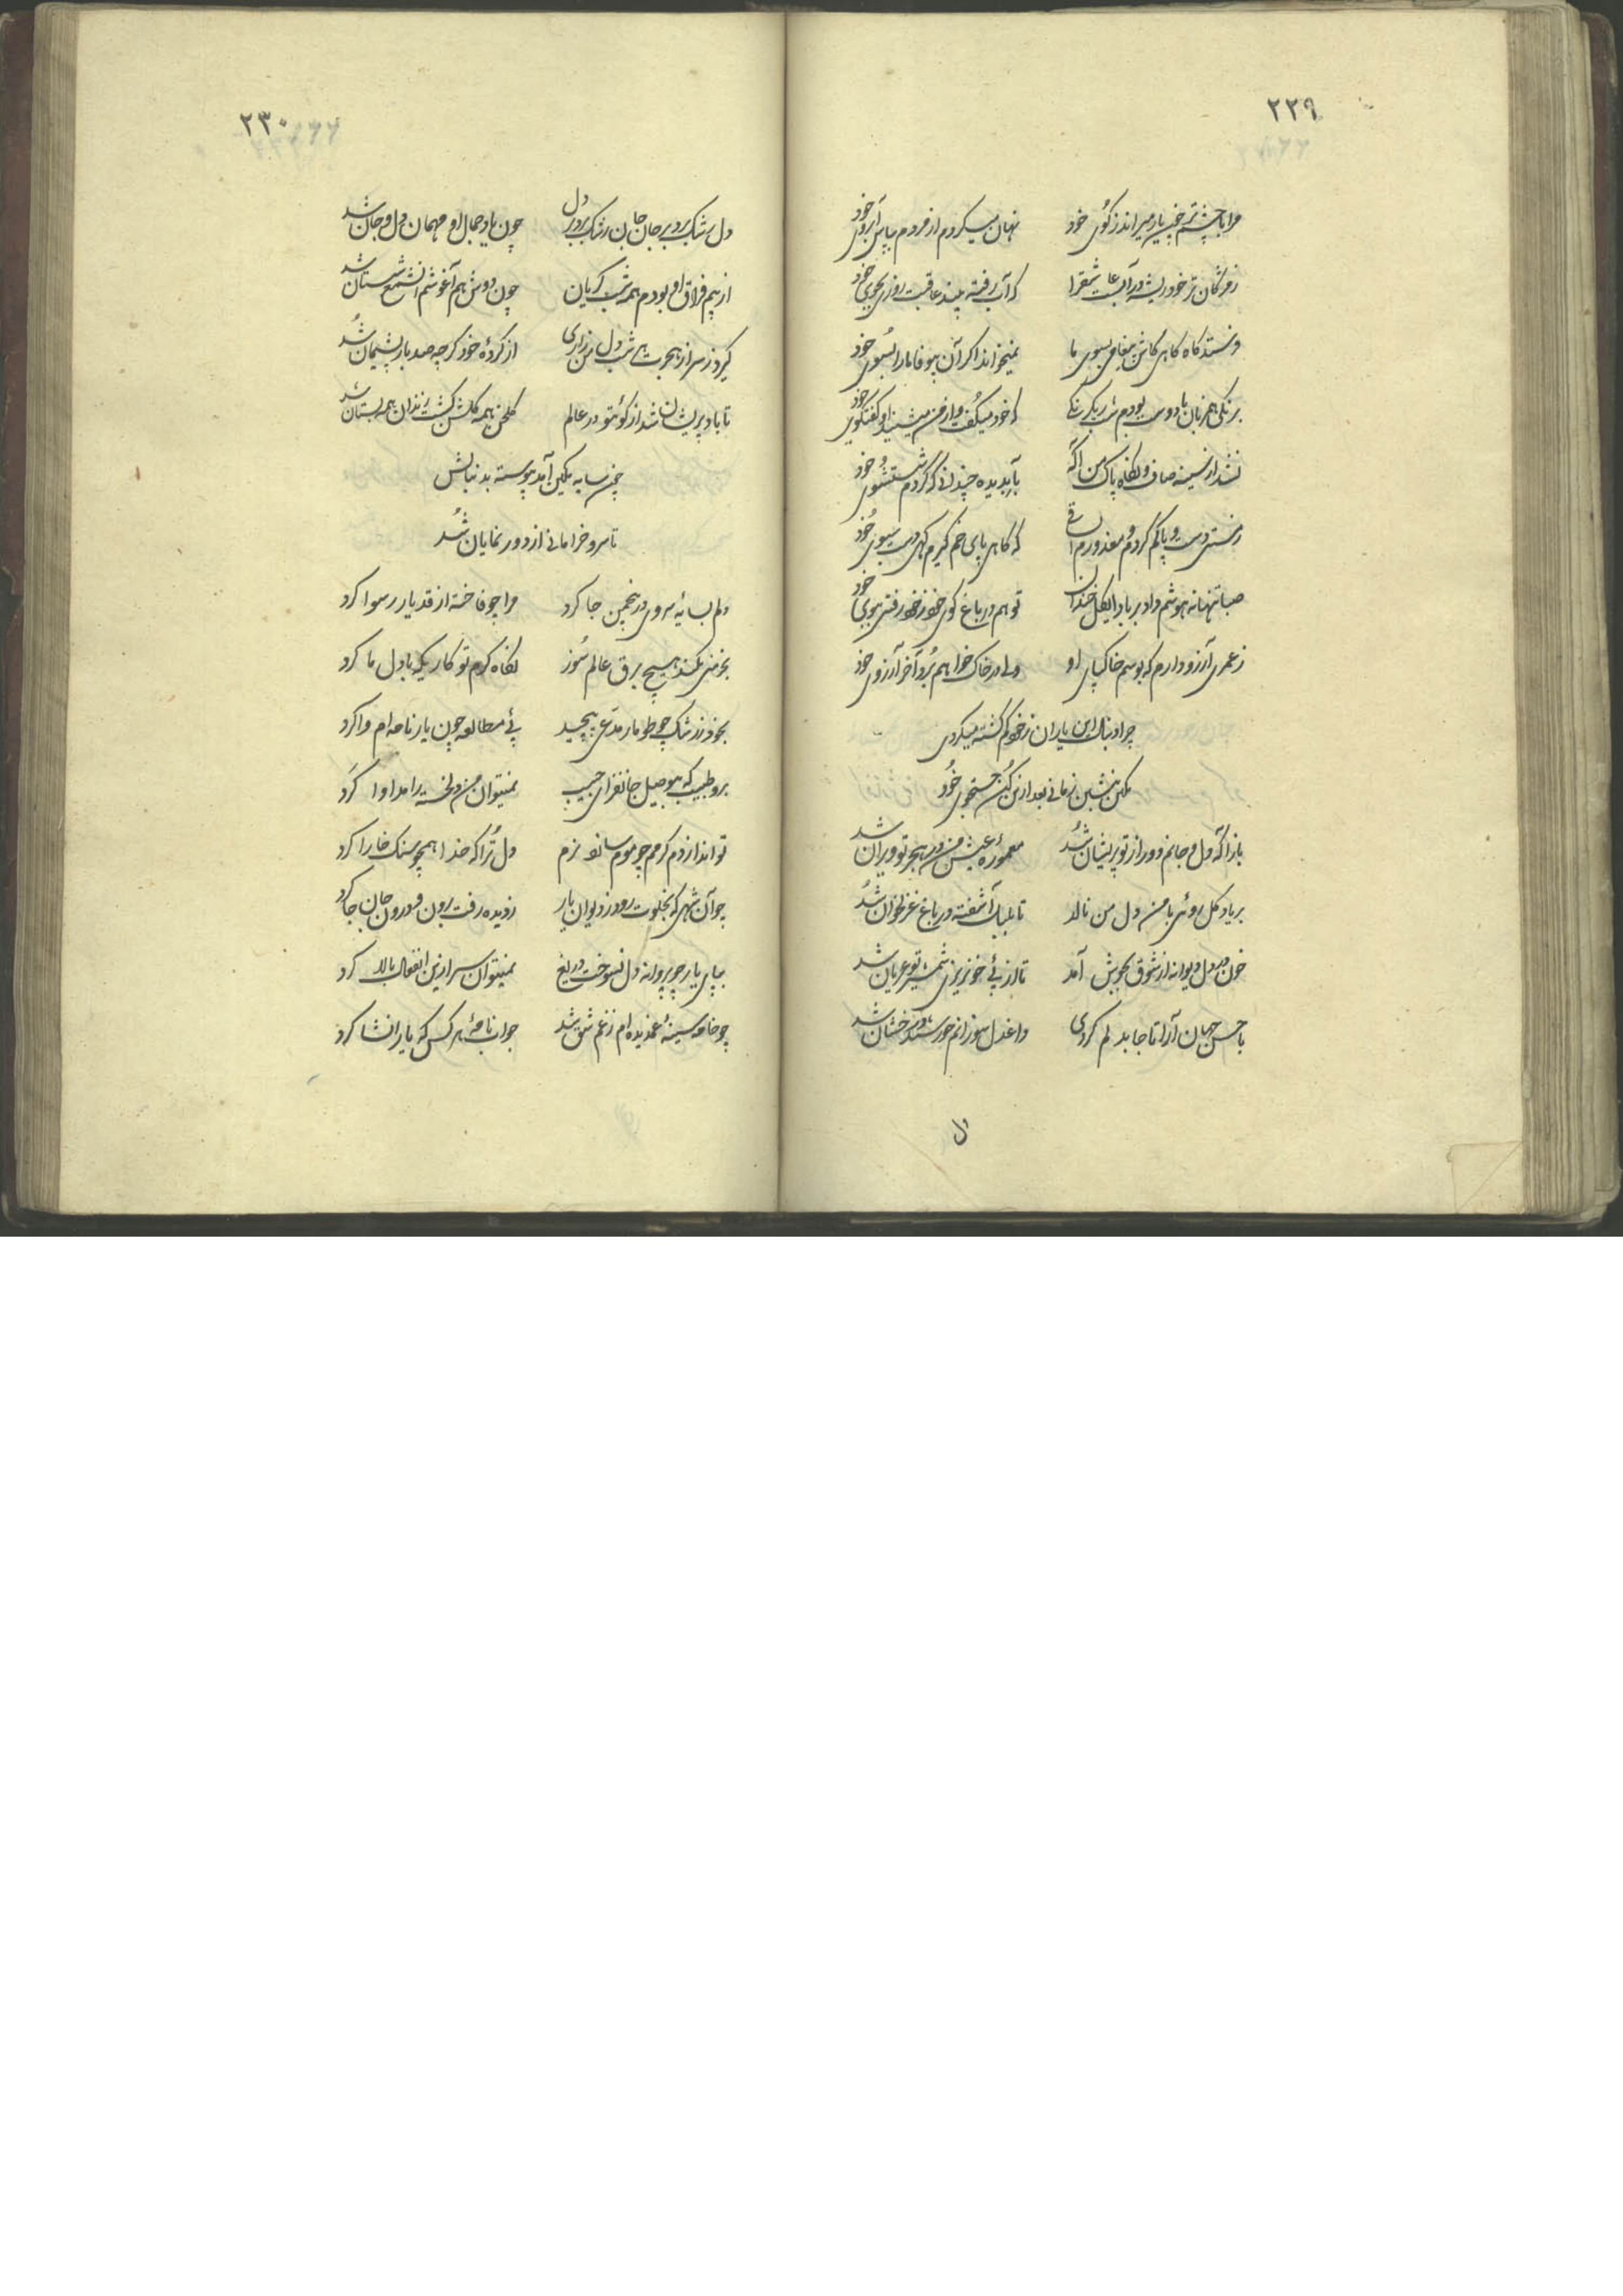 ۲۲۹
مرا با چشم تر چون یار میراند ز کوی خود نهان میکردم از مردم بپاس آبروی خود
ز مژگان تر خود ریشه در آب عاشقرا که آب رفته بیند عاقبت روزی بجوی خود
فرستد گاه گاهی کاش پیغامی بسوی ما نمیخواند اگر آن بیوفا ما را بسوی خود
برنگی همزبان با دوست بودم شب ز یکرنگی که خود میگفت و از من میشنید او گفتگوی خود
نشد از سینه صاف و نگاه پاک من آگه بآب دیده چندانی که کردم شستشوی خود
ز مستی دست و پا گم کردم و معذورم ای ساقی که گاهی پای خم گیرم گهی دست سبوی خود
صبا تنها نه هوشم داد بر باد ای گل خندان تو هم در باغ گوئی خود ز خود رفتی ببوی خود
ز عمری آرزو دارم که بوسم خاکپای او ولی در خاک خواهم برد آخر آرزوی خود
چرا دنبال این یاران ز خود گم گشته میگردی
تمکین بنشین زمانی بعد ازین کن جستجوی خود
باز آ که دل و جانم دور از تو پریشان شد معموره عیش من در هجر تو ویران شد
بر یاد گل روئی با من دل من نالد تا بلبل آشفته در باغ غزلخوان شد
خون در دل دیوانه از شوق بجوش آمد تا از پئ خونریزی شمشیر تو عریان شد
با حسن جهان آرا تا جا بدلم کردی داغ دل سوزانم خورشید درخشان شد
دل
۲۳۰
دل رشک برد بر جان جان رشک برد بر دل چون یاد جمال او مهمان دل و جان شد
از بیم فراق او بودم همه شب گریان چون دوش هم آغوشم آن شمع شبستان شد
گیرد ز سر از هجرت هر شب دل من زاری از کرده خود گرچه صد بار پشیمان شد
تا باد پریشان شد از کوی تو در عالم گلخن همه گلشن گشت زندان همه بستان شد
چون سایه تمکین آمد پیوسته بدنبالش
تا سرو خرامانی از دور نمایان شد
دلم بسایه سروی در چمن جا کرد مرا چو فاخته از قد یار رسوا کرد
بخرمنی نکند هیچ برق عالم سوز نگاه گرم تو کاریکه با دل ما کرد
بخود ز رشک چو طومار مدعی پیچید پئ مطالعه چون یار نامه ام وا کرد
برو طبیب که بی وصل جانفزای حبیب نمیتوان من دلخسته را مداوا کرد
تو اندر از دم گرمم چو موم سازد نرم دل ترا که خدا همچو سنگ خارا کرد
چو آن شهی که بخلوت رود ز دیوان یار ز دیده رفت برون و درون جان جا کرد
بپای یار چو پروانه دل نسوخت دریغ نمیتوان سر ازین انفعال بالا کرد
چو خامه سینه غمدیده ام ز غم شق شد جواب نامه هر کس که یار انشا کرد